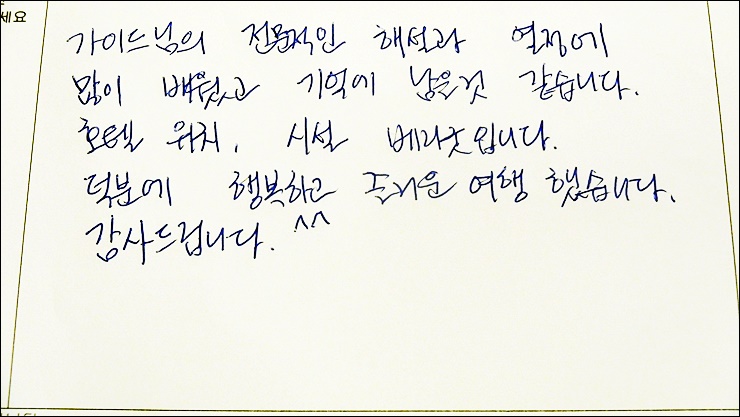 세요
가이드님의 전문적인 해설과 열정에
많이 배웠고 기억에 남을것 같습니다.
호텔 위치, 시설 베리굿입니다.
덕분에 행복하고 즐거운 여행 했습니다.
감사드립니다. ^^